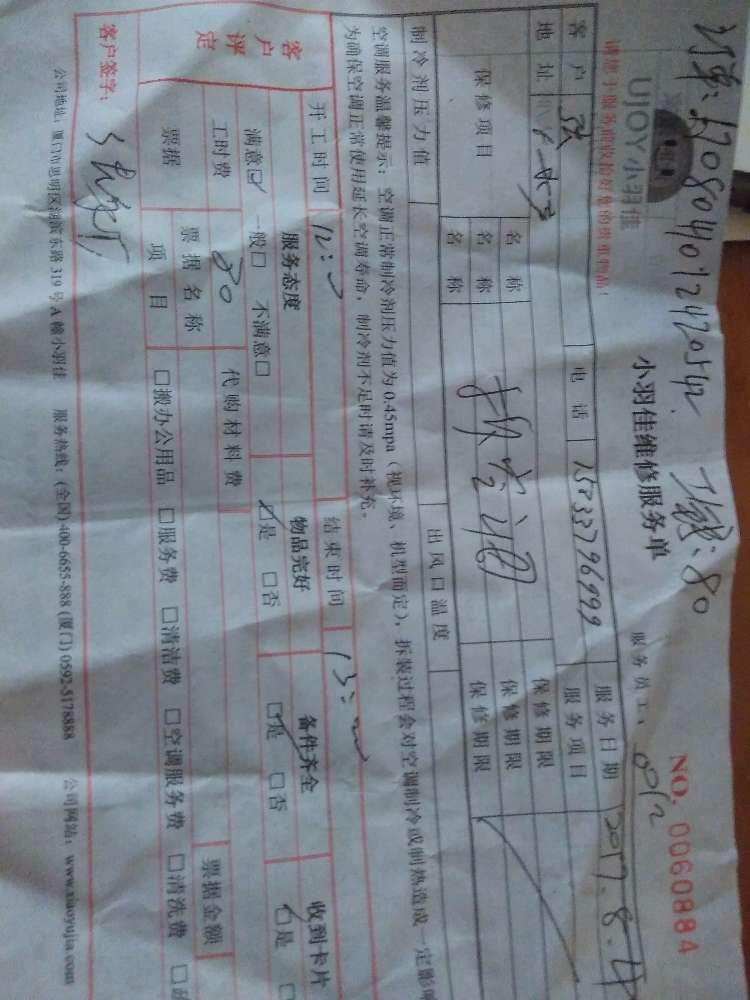 订单:A20804012420542 工钱:80
UJOY小羽佳
小羽佳维修服务单
服务员工: 0012
NO. 0060884
请您于服务前收拾好您的贵重物品!
客户 张 电话 15833796999 服务日期 2017.8.4
地址 服务项目
保修项目 名称 保修期限
名称 拆空调 保修期限
名称 保修期限
制冷剂压力值 出风口温度
空调服务温馨提示:空调正常制冷剂压力值为0.45mpa(视环境、机型而定),拆装过程会对空调制冷或制热造成一定影响
为确保空调正常使用延长空调寿命,制冷剂不足时请及时补充。
开工时间 12: 结束时间 13:
客户评定 服务态度 物品完好 备件齐全 收到卡片
满意☑ 一般□ 不满意□ ☑是 □否 ☑是 □否 ☑是
工时费 80 代购材料费
票据 票据名称 票据金额
项目 □搬办公用品 □服务费 □清洁费 □空调服务费 □清洗费
客户签字:
公司地址:厦门市思明区湖滨东路319号A幢小羽佳 服务热线:(全国)400-6655-888 (厦门) 0592-5178888 公司网站:www.xiaoyujia.com